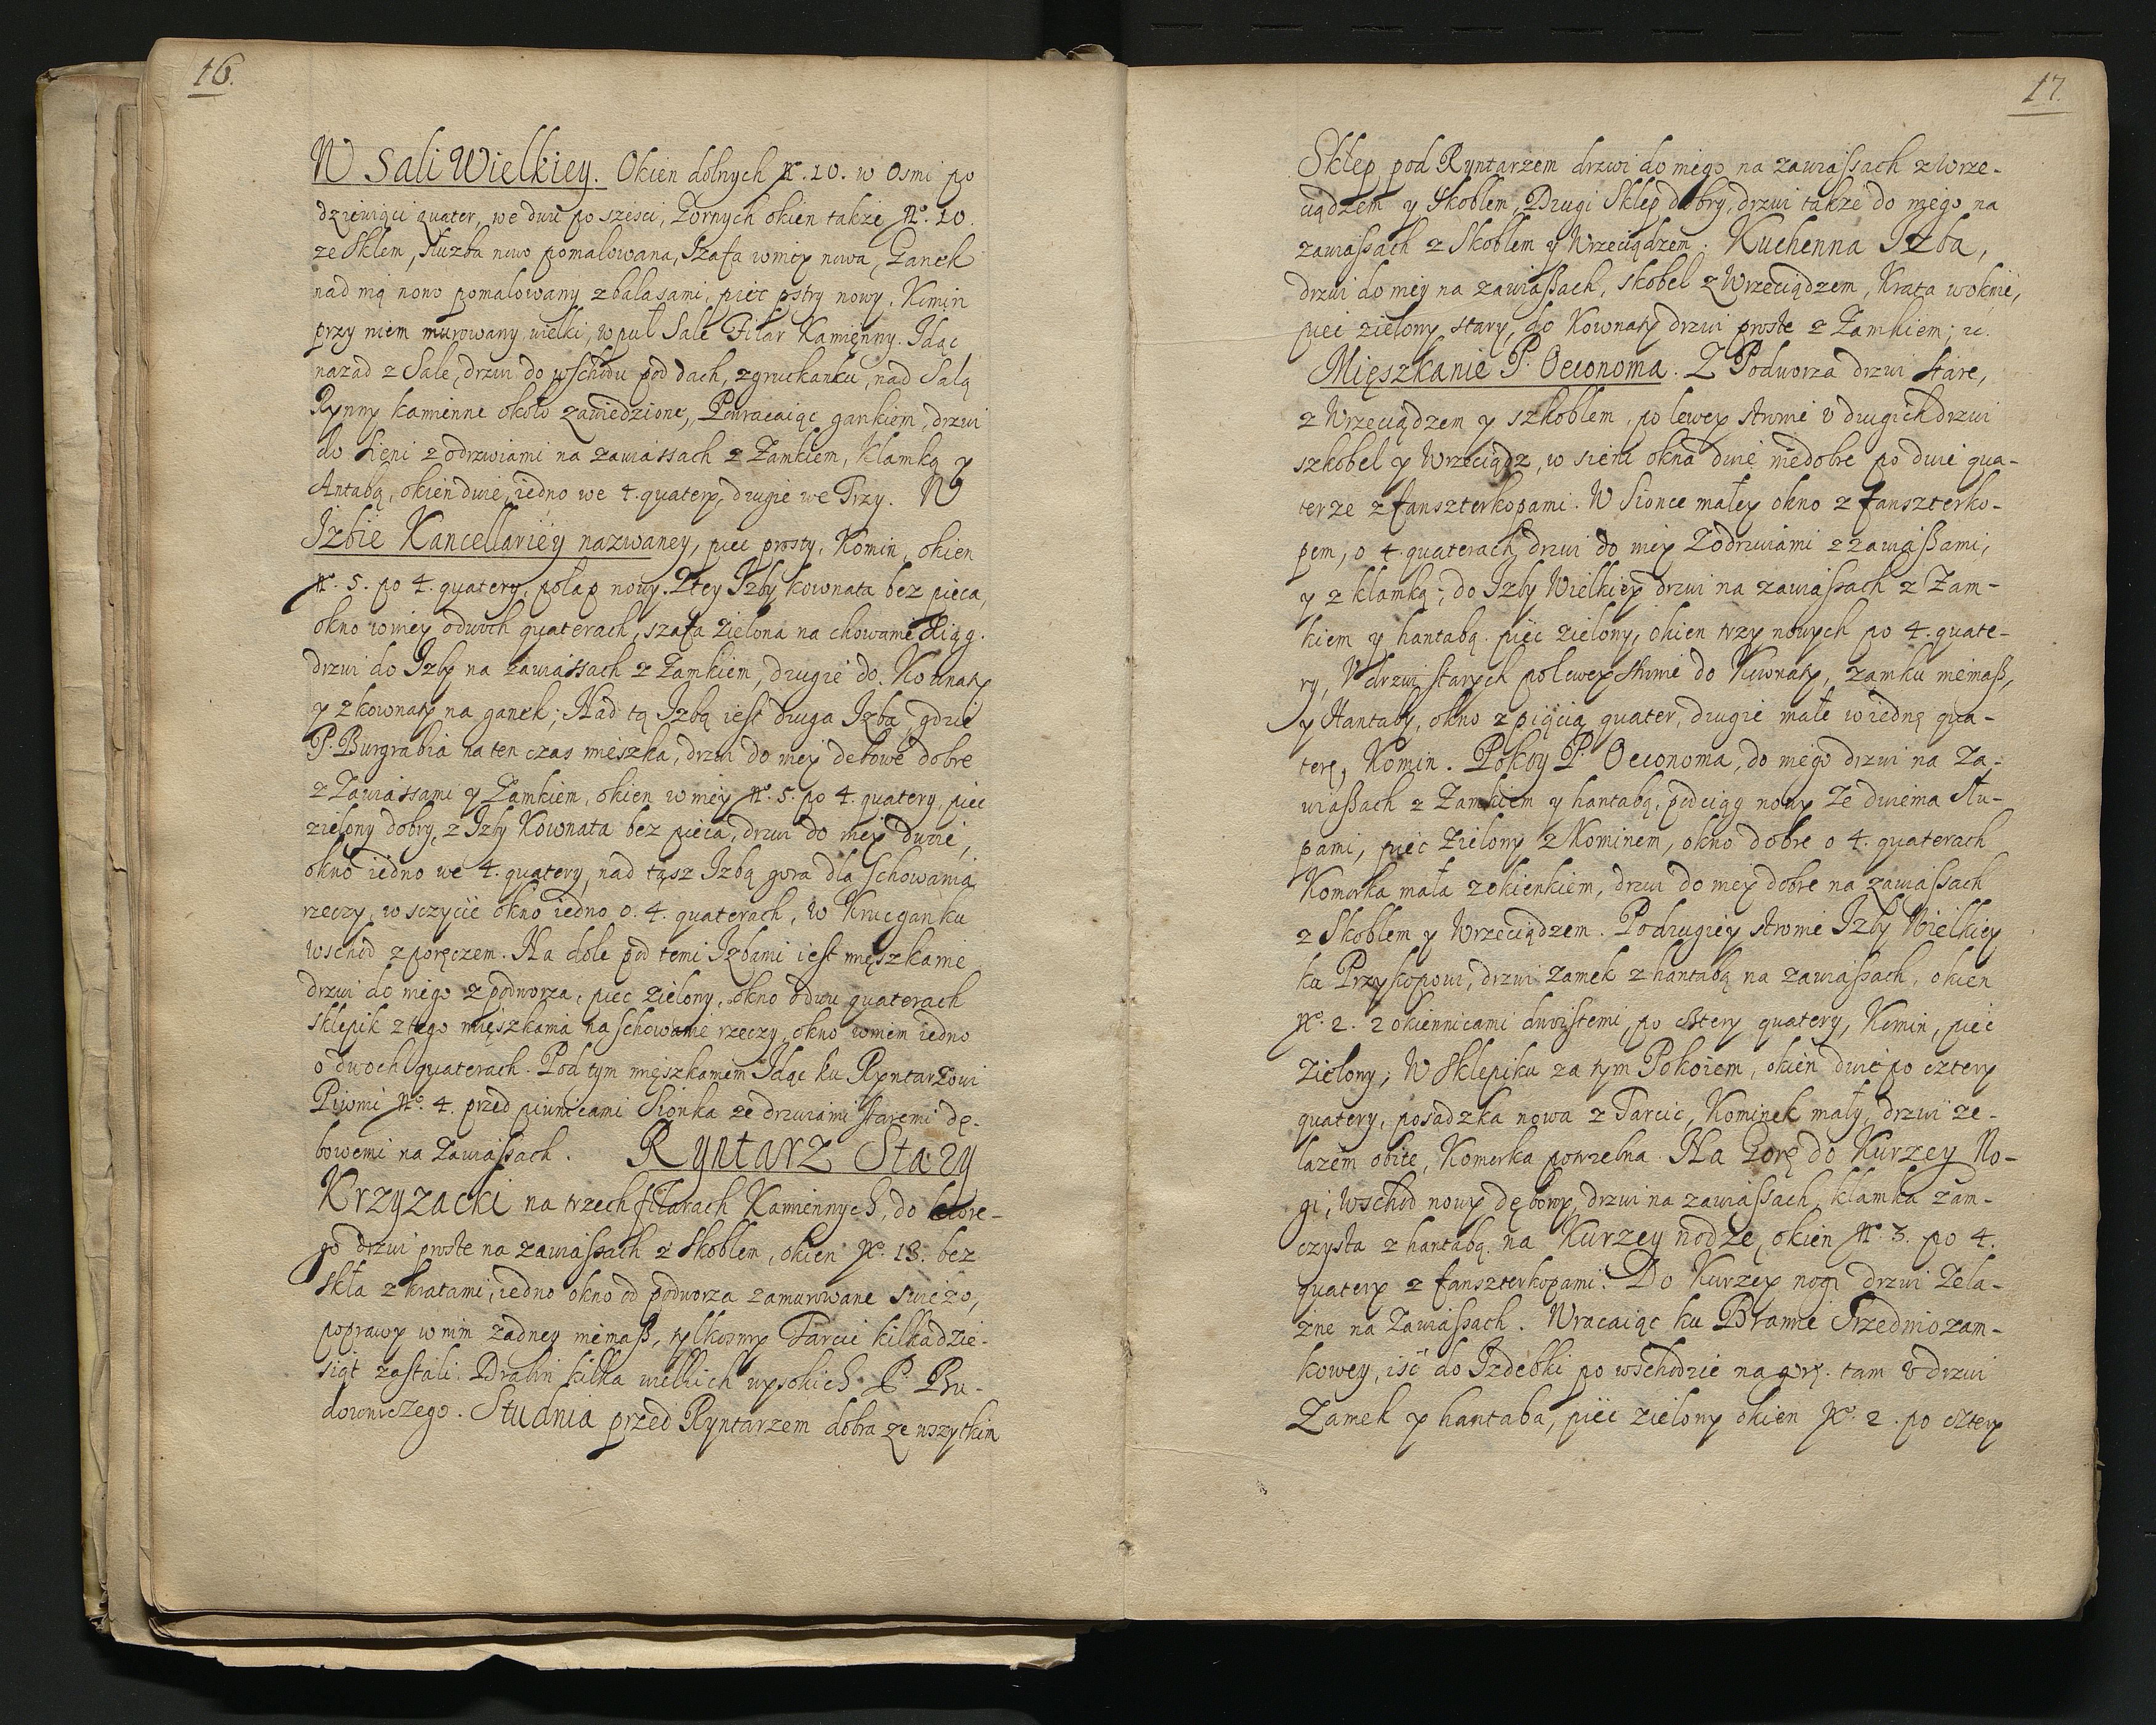 16.
W Sali Wielkiey. Okien dolnych N. 10. w osmi po
dziewięci quater, we dwu po szesci, Gornych okien także No. 10.
ze Skłem, Służba nowo pomalowana, Szafa w niey nowa, Ganek
nad nią nowo pomalowany z balasami, piec pstry nowy, Komin
przy niem murowany wielki, w puł Sale Filar Kamienny. Idąc
nazad z Sale, drzwi do wschodu pod dach, z gruckanku, nad Salą
Rynny kamienne około zawiedzione, Powracaiąc gankiem, drzwi
do Sieni z odrzwiami na zawiassach z Zamkiem, Klamką y
Antabą, okien dwie, iedno we 4. quatery, drugie we Trzy. W
Izbie Kancellariey nazwaney, piec prosty, Komin, okien
No. 5. po 4. quatery, połap nowy. Z tey Izby kownata bez pieca,
okno w niey o dwuch quaterach, szafa zielona na chowanie Xiąg.
drzwi do Izby na zawiassach z Zamkiem, drugie do Kownaty
y z kownaty na ganek; Nad tą Izbą iest druga Izba, gdzie
P. Burgrabia na ten czas mieszka, drzwi do niey dębowe dobre
z Zawiassami y Zamkiem, okien w niey No. 5. po 4. quatery, piec
zielony dobry, z Izby Kownata bez pieca, drzwi do niey dwie,
okno iedno we 4. quatery, nad tąsz Izbą gora dla schowania
rzeczy, w sczycie okno iedno o. 4. quaterach, W Krucganku
wschod z poręczem. Na dole pod temi Izbami iest mięszkanie
drzwi do niego z podworza, piec zielony, okno o dwu quaterach
sklepik z tego mięszkania na schowanie rzeczy, okno w niem iedno
o dwoch quaterach. Pod tym mięszkaniem Idąc ku Ryntarzowi
Piwnic No. 4. przed piwnicami Sionka ze drzwiami staremi dę-
bowemi na Zawiassach. Ryntarz Stary
Krzyzacki na trzech filarach Kamiennych, do ktore-
go drzwi proste na zawiassach z skoblem, okien No. 13. bez
skła z kratami, iedno okno od podworza zamurowane swiezo,
poprawy w nim zadney niemasz, tylkosmy Tarcic kilkadzie-
siąt zastali. Drabin kilka wielkich wysokich P. Bu-
downiczego. Studnia przed Ryntarzem dobra ze wszytkim
17.
Sklep pod Ryntarzem drzwi do niego na zawiassach z wrze-
ciądzem y skoblem, Drugi Sklep dobry, drzwi także do niego na
zawiassach z Skoblem y Wrzeciądzem. Kuchenna Izba,
drzwi do niey na zawiassach, skobel z Wrzeciądzem, Krata w oknie,
piec zielony stary, do Kownaty drzwi proste z Zamkiem; ic.
Mięszkanie P. Oeconoma. Z Podworza drzwi stare,
z Wrzeciądzem y szkoblem, po lewey stronie v drugich drzwi
szkobel y Wrzeciądz, w sieni okna dwie niedobre po dwie qua-
terze z fansterkopami. W Sionce małey okno z fanszterko-
pem, o 4. quaterach, drzwi do niey Zodrzwiami z zawiassami,
y z klamką; do Izby Wielkiey drzwi na zawiassach z Zam-
kiem y hantabą. piec zielony, okien trzy nowych po 4. quate-
ry, V drzwi starych po lewey stronie do Kownaty, zamku niemasz,
y Hantaby, okno z pięcią quater, drugie małe w iednę qua-
terę, Komin. Pokoy P. Oeconoma, do niego drzwi na Za-
wiassach z Zamkiem y hantabą, podciąg nowy Ze dwiema Słu-
pami, piec Zielony z Kominem, okno dobre o 4. quaterach
Komorka mała z okienkiem, drzwi do niey dobre na zawiassach
z Skoblem y Wrzeciądzem. Po drugiey stronie Izby Wielkiey
ku Przykopowi, drzwi zamek z hantabą na zawiassach, okien
No. 2. z okiennicami dwoistemi, po cztery quatery, Komin, piec
Zielony; W Sklepiku za tym Pokoiem, okien dwie po cztery
quatery, posadzka nowa z Tarcic, Kominek mały, drzwi że-
lazem obite, Komorka potrzebna. Na Gorę do Kurzey No-
gi, Wschod nowy dębowy, drzwi na zawiassach, klamka zam-
czysta z hantabą. na Kurzey nodze, okien No. 3. po 4.
quatery z fanszterkopami. Do Kurzey nogi drzwi Zela-
zne na Zawiassach. Wracaiąc ku Bramie Srzedniozam-
kowey, iść do Izdebki po wschodzie na gorę. tam v drzwi
Zamek y hantaba, piec zielony okien No. 2. po cztery